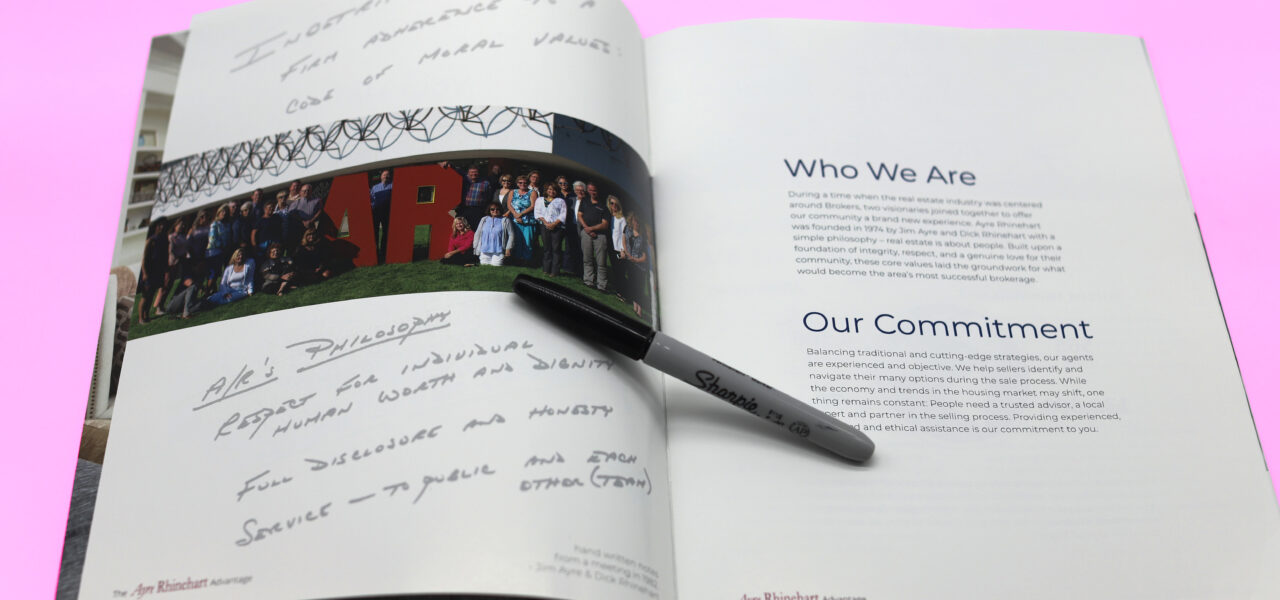 FIRM ADHERENCE TO A
CODE OF MORAL VALUES:
AR
A/R's PHILOSOPHY
RESPECT FOR INDIVIDUAL
HUMAN WORTH AND DIGNITY
FULL DISCLOSURE AND HONESTY
SERVICE — TO PUBLIC AND EACH
OTHER (TEAM)
hand written notes
from a meeting in 1982
- Jim Ayre & Dick Rhinehart
The Ayre Rhinehart Advantage
Sharpie
Who We Are
During a time when the real estate industry was centered
around Brokers, two visionaries joined together to offer
our community a brand new experience. Ayre Rhinehart
was founded in 1974 by Jim Ayre and Dick Rhinehart with a
simple philosophy – real estate is about people. Built upon a
foundation of integrity, respect, and a genuine love for their
community, these core values laid the groundwork for what
would become the area's most successful brokerage.
Our Commitment
Balancing traditional and cutting-edge strategies, our agents
are experienced and objective. We help sellers identify and
navigate their many options during the sale process. While
the economy and trends in the housing market may shift, one
thing remains constant: People need a trusted advisor, a local
and partner in the selling process. Providing experienced,
and ethical assistance is our commitment to you.
Ayre Rhinehart Advantage